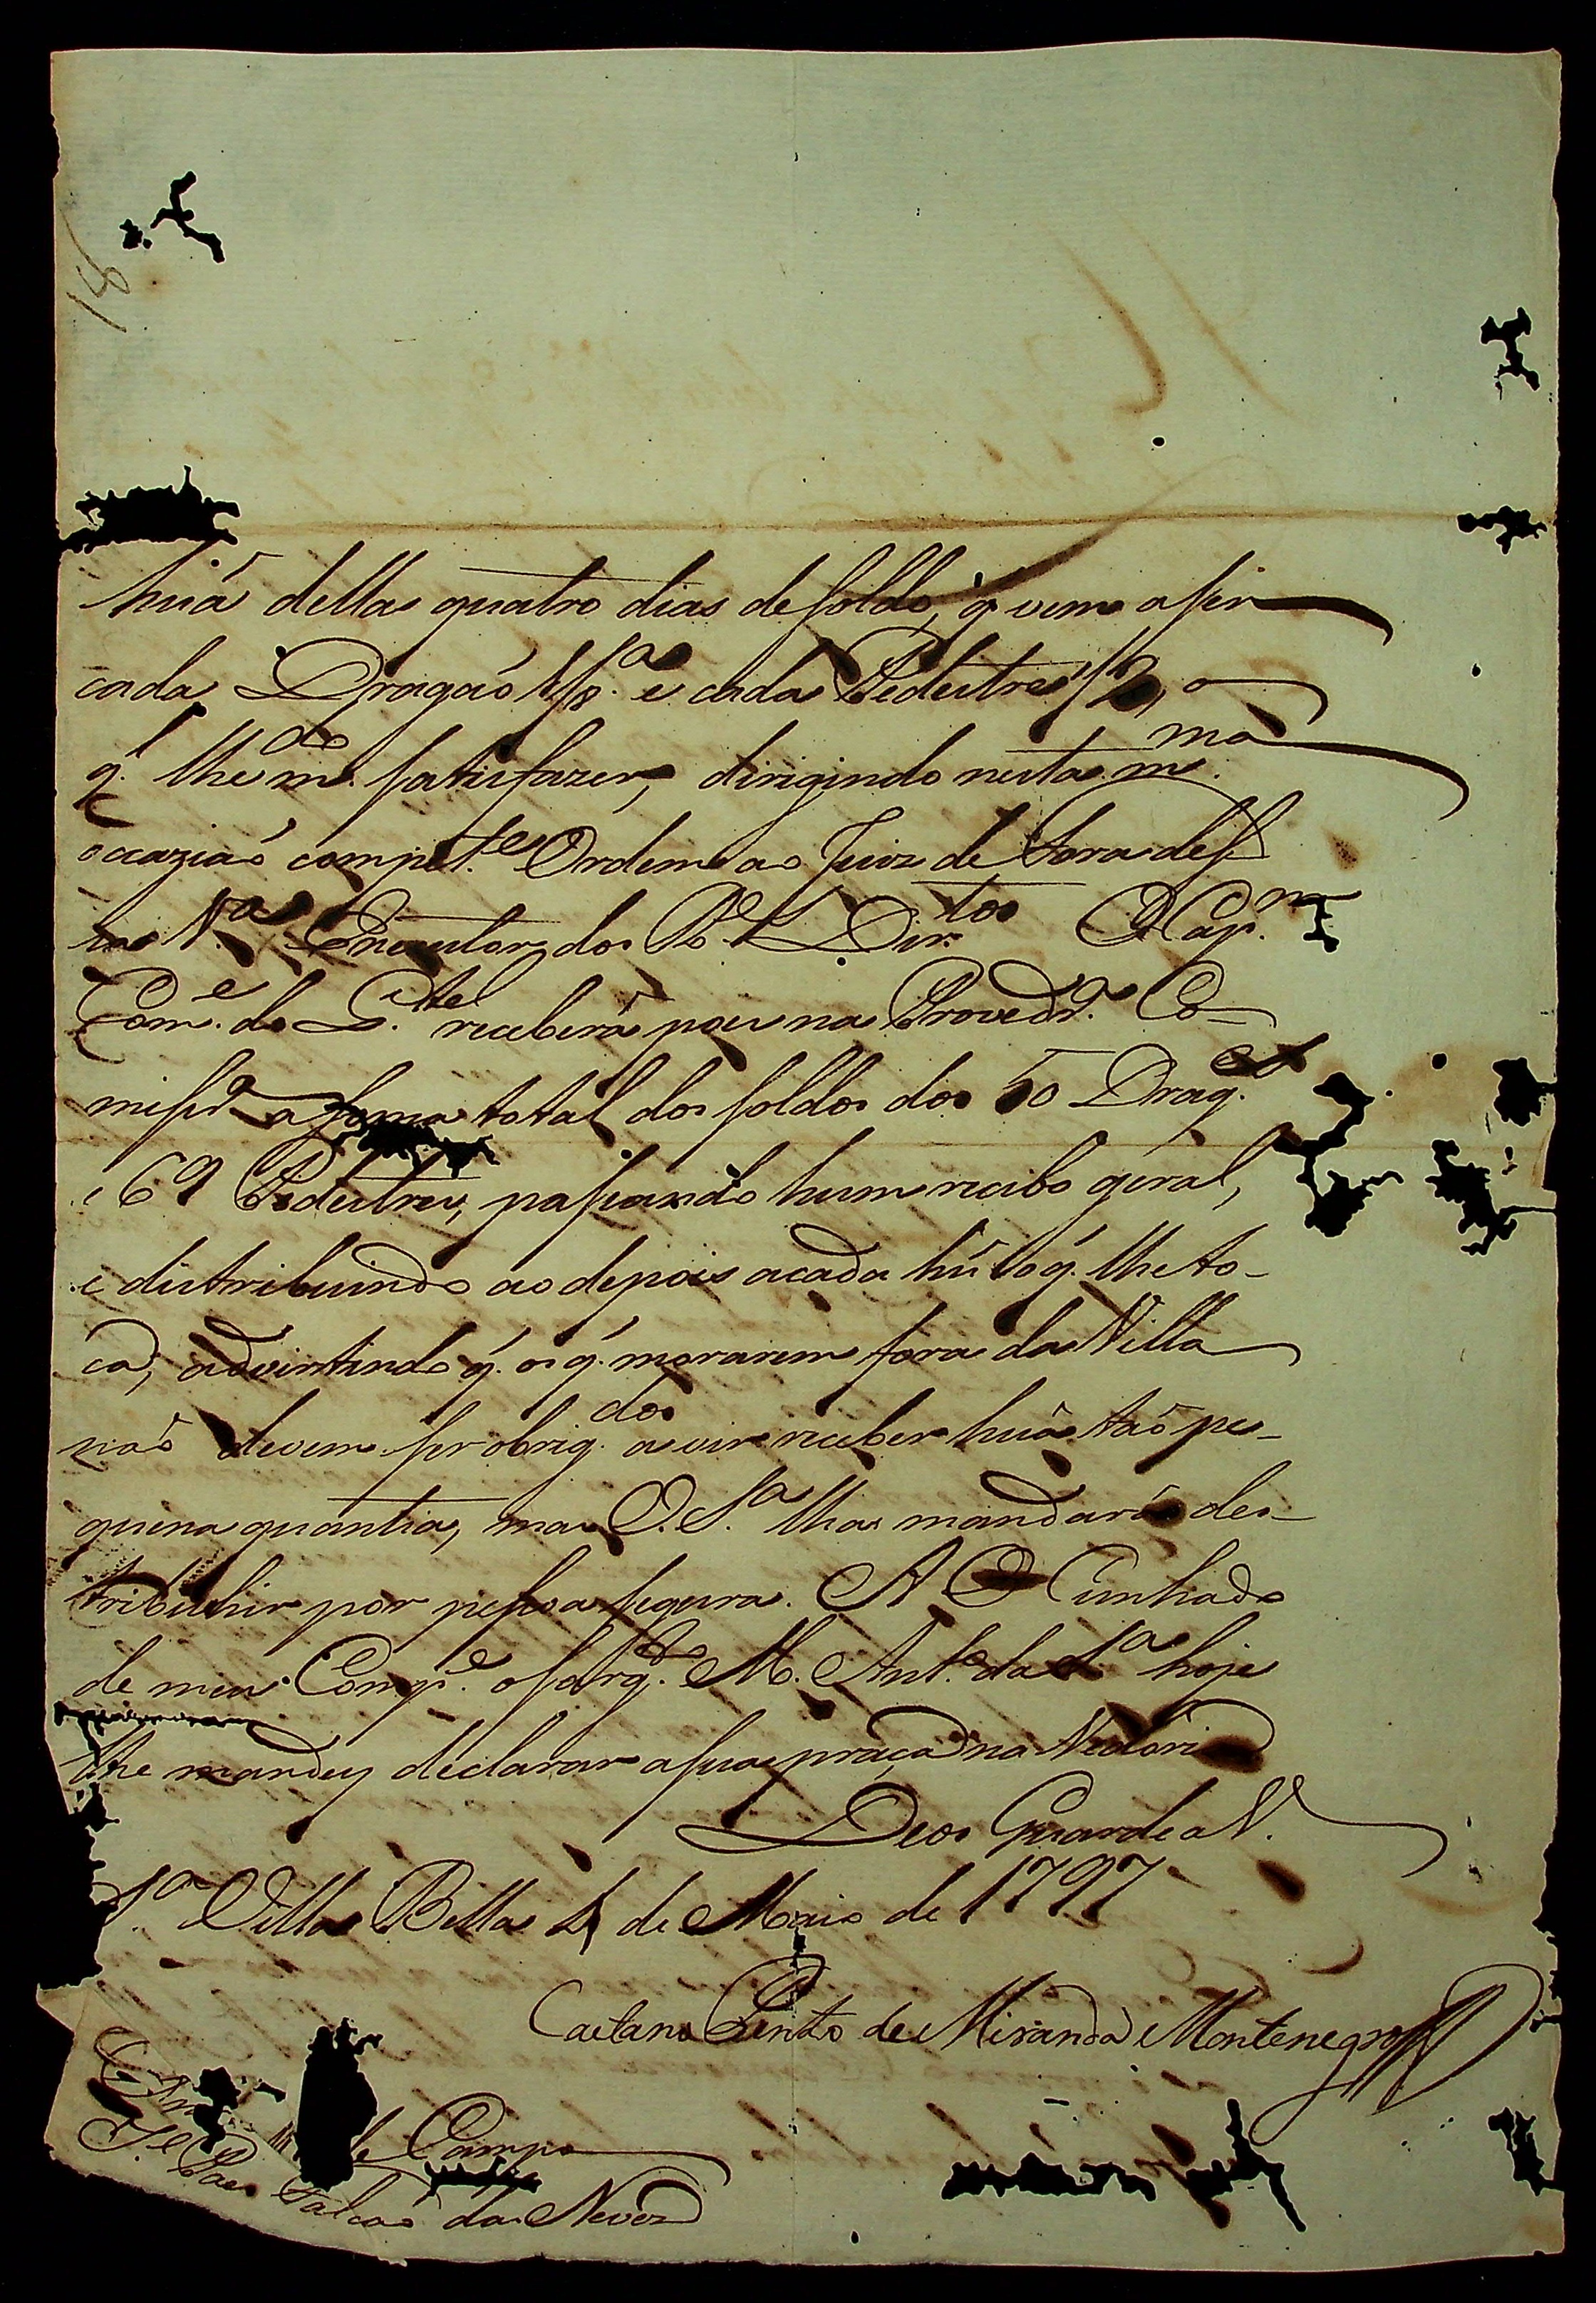 18
huã dellas quatro dias de soldo, q̃ vem a ser
cada Dragaõ e cada Pedestre
q.l lhe m.do satisfazer, dirigindo nesta m.ma
occaziaõ compet.e Ordem ao Juiz de Fora des
sa V.a Executor dos Dir.tos O Cap.m
Com.e do q.tel receberá pois na Provedr.a Co-
miss.a a soma total dos soldos dos 50 Drag.es
e 69 Pedestres, passando hum recibo geral,
e distribuindo ao depois acada hũ o q. lhe to-
ca; advertindo q. os q. morarem fora da Villa
naõ devem ser obrig.dos a vir receber huã taõ pe-
quena quantia, mas V. S.a lha mandará des-
tribuhir por pessoa segura. A O Cunhado
de meu Comp.e o sarg.to M. Ant.o da S.a hoje
lhe mandey declarar a sua praça na Vedoria
Deos Guarde a V.
S.a Villa Bella 4 de Maio de 1797
Caetano Pinto de Miranda Montenegro
de Campo
J.e Paes Falcaõ das Neves